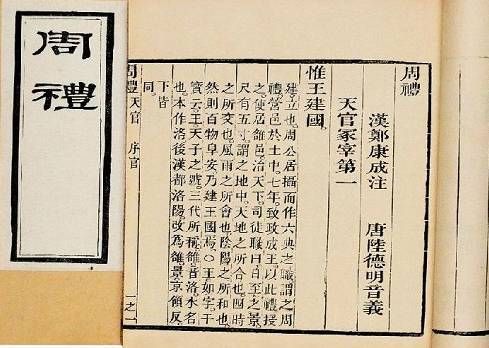 周禮
周禮
漢鄭康成注　唐陸德明音義
天官冢宰第一
惟王建國
建立也周公居攝而作六典之職謂之周
禮營邑於土中七年致政成王以此禮授
之使居雒邑治天下司徒職曰日至之景
尺有五寸謂之地中天地之所合也四時
之所交也風雨之所會也陰陽之所和也
然則百物阜安乃建王國焉○王如字干
寶云王天子之號三代所稱雒音洛水名
也本作洛後漢都洛陽改為雒景京領反
下皆
同
周禮 天官　序官 一之一